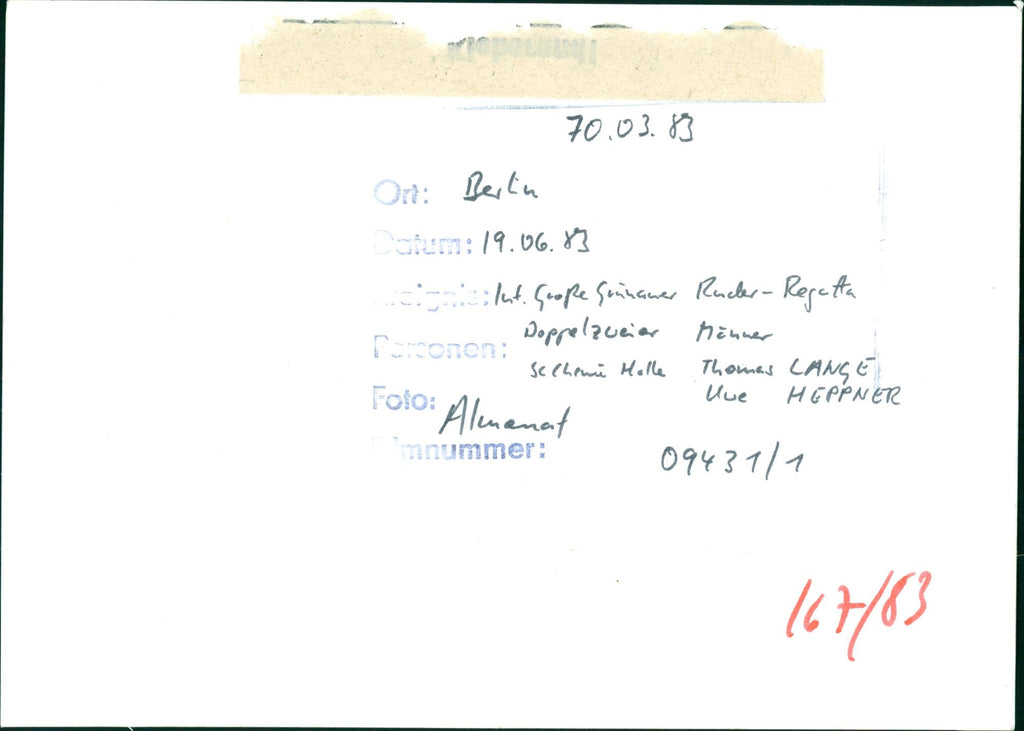 70.03.83
Ort: Berlin
Datum: 19.06.83
Ereignis: Int. Große Grünauer Ruder-Regatta
Doppelzweier Männer
Personen: SC Chemie Halle Thomas LANGE
Uwe HEPPNER
Foto: Almonat
Filmnummer: 09431/1
167/83